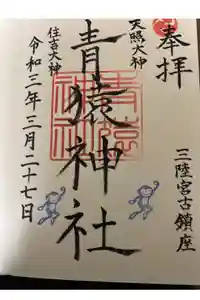 奉拝
三陸宮古鎮座
天照大神
青猿神社
住吉大神
令和三年三月二十七日